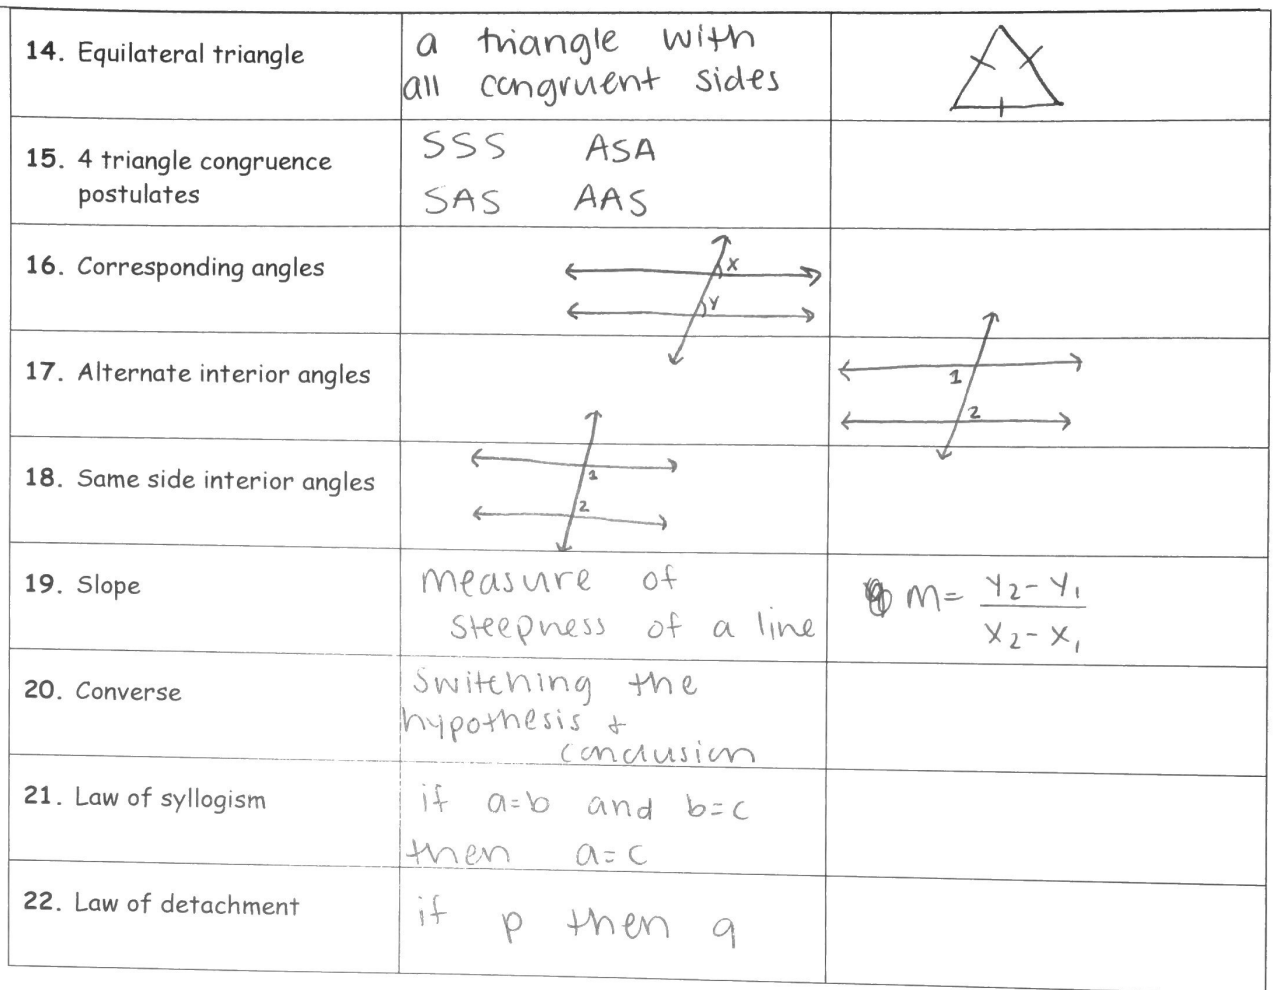 14. Equilateral triangle
a triangle with
all congruent sides
15. 4 triangle congruence
postulates
SSS ASA
SAS AAS
16. Corresponding angles
X
Y
17. Alternate interior angles
1
2
18. Same side interior angles
1
2
19. Slope
measure of
steepness of a line
m = y₂ - y₁
x₂ - x₁
20. Converse
switching the
hypothesis +
conclusion
21. Law of syllogism
if a=b and b=c
then a=c
22. Law of detachment
if p then q